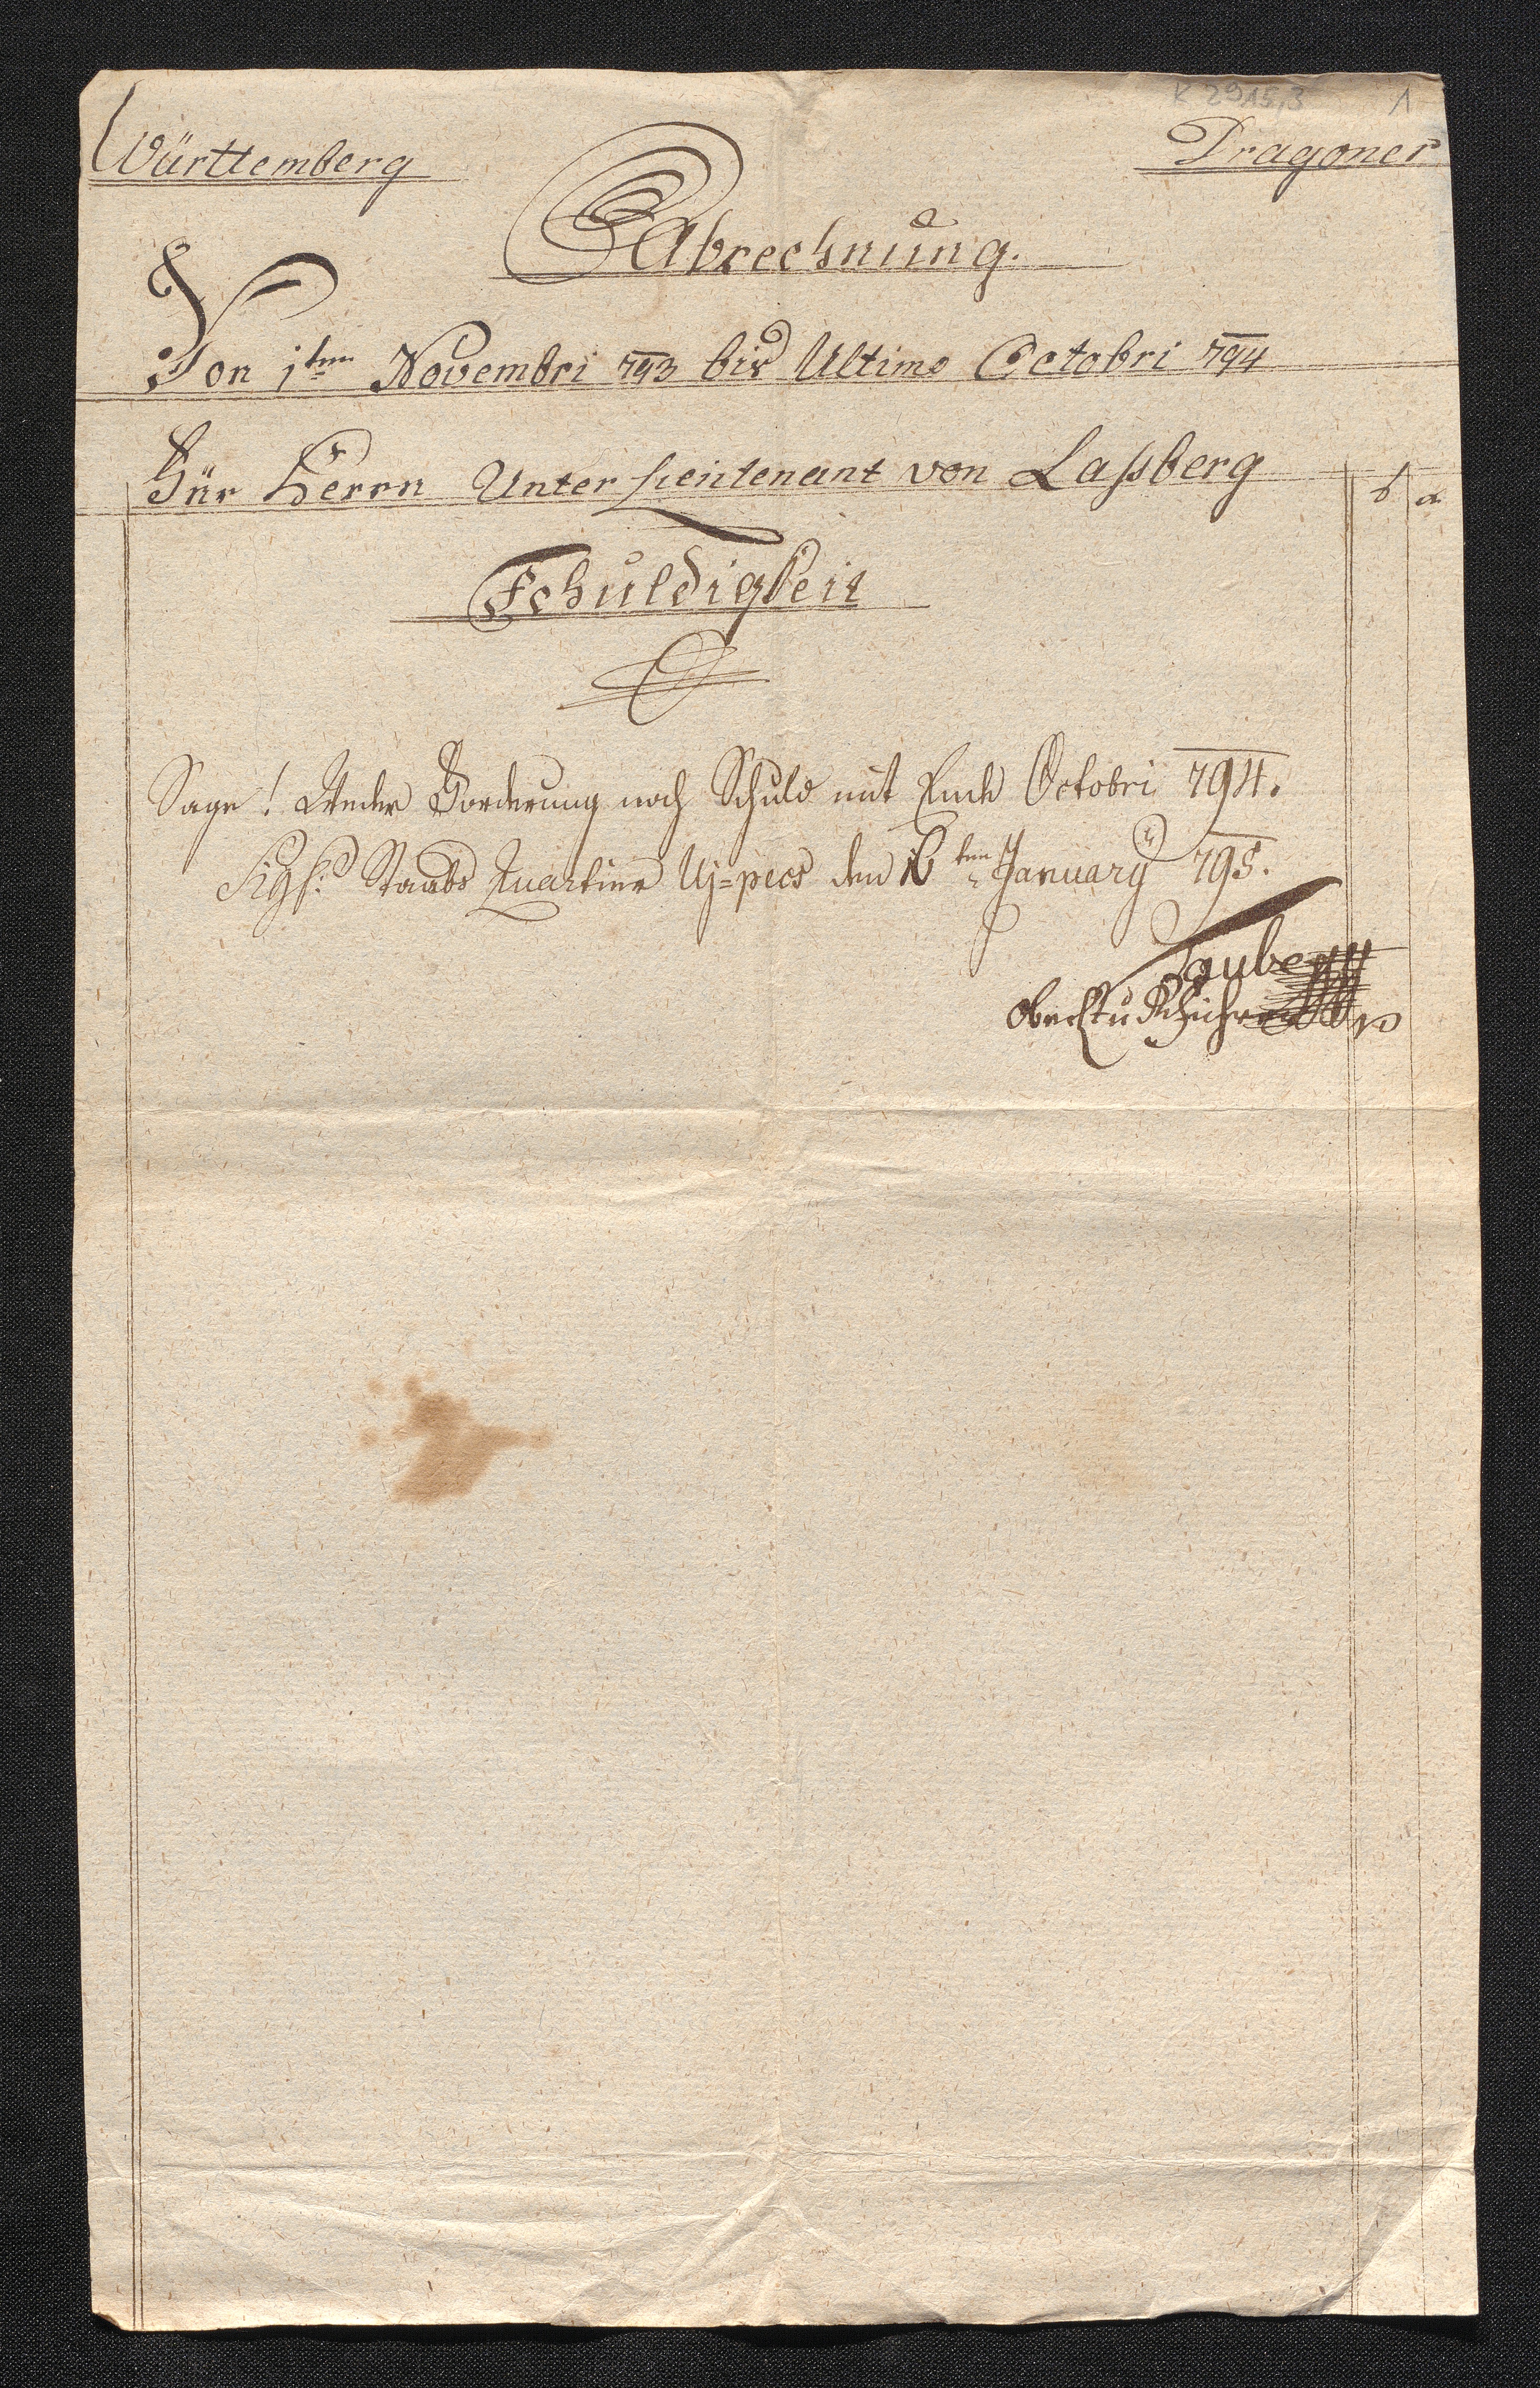 K 2915,3 1
Württemberg Dragoner
Abrechnung.
Von 1ten Novembri 793 bis Ultimo Octobri 794
Für Herrn Unter Lieutenant von Laßberg
Schuldigkeit
Sage! Weder Forderung noch Schuld mit Ende Octobri 794.
Sigl: Staabs Quartier Uj=pecs den 16ten January 795.